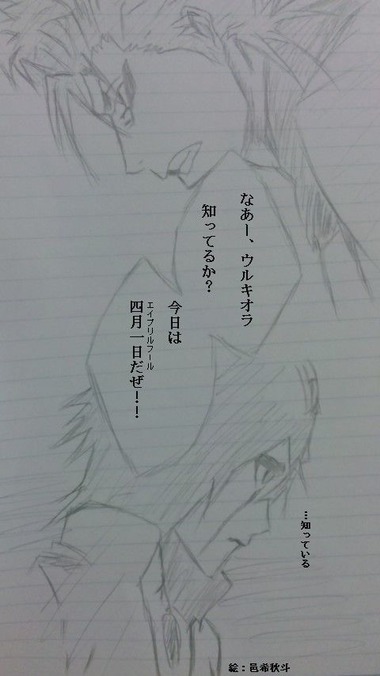 なあー、ウルキオラ
知ってるか?
今日は
エイプリルフール
四月一日だぜ!!
…知っている
絵:邑希秋斗